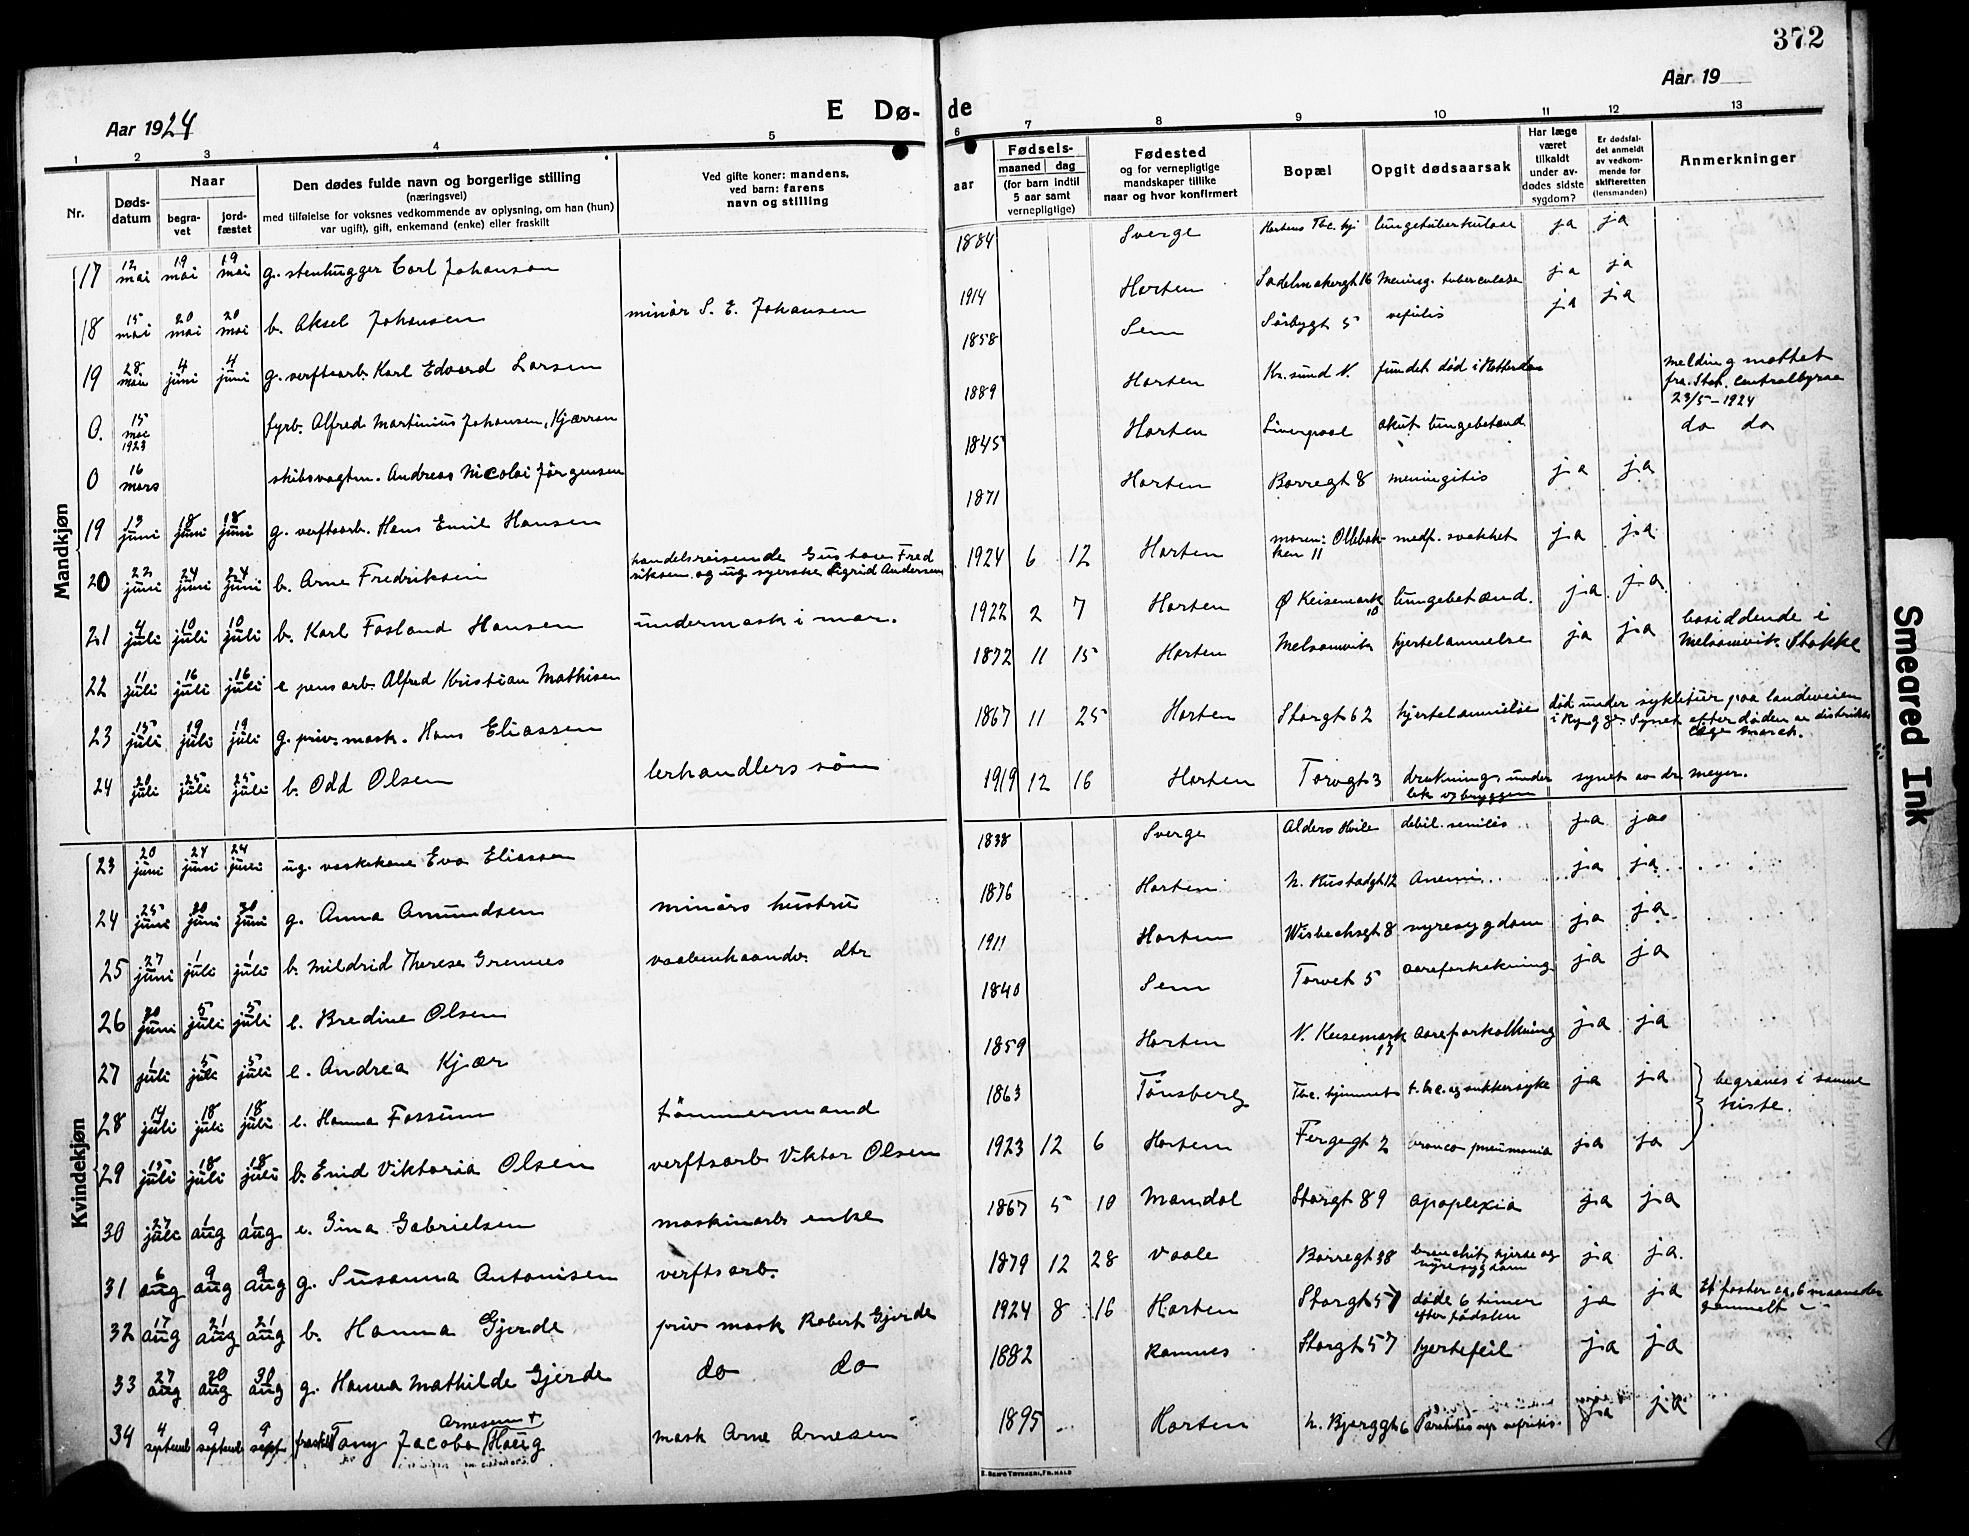 372
Aar 1924
E Dø-
de
Aar 19
1 2 3 4 5 6 7 8 9 10 11 12 13
Nr.
Døds-
datum
Naar
begra-
vet
jord-
fæstet
Den dødes fulde navn og borgerlige stilling
(næringsvei)
med tilføielse for voksnes vedkommende av oplysning, om han (hun)
var ugift), gift, enkemand (enke) eller fraskilt
Ved gifte koner: mandens,
ved barn: farens
navn og stilling
aar
Fødsels-
maaned dag
(for barn indtil
5 aar samt
vernepligtige)
Fødested
og for vernepligtige
mandskaper tillike
naar og hvor konfirmert
Bopæl
Opgit dødsaarsak
Har læge
været
tilkaldt
under av-
dødes sidste
sygdom?
Er dødsfal-
det anmeldt
av vedkom-
mende for
skifteretten
(lensmanden)
Anmerkninger
Mandkjøn
17 12 mai 19 mai 19 mai g. stenhugger Carl Johanson 1884 Sverge Hortens Tbc. hj. lungetuberkulose ja ja
18 15 mai 20 mai 20 mai b. Aksel Johansen minör S. E. Johansen 1914 Horten Sadelmakergt 16 Mening. tuberculose ja ja
19 28 mai 4 juni 4 juni g. verftsarb. Karl Edvard Larsen 1858 Sem Sörbygt 5 ja ja
0. 15 1923 fyrb. Alfred Martinius Johansen, Kjærran 1889 Horten Kr.sund N. fundet død i Rotterdam melding mottat
fra Stat. Centralbyraa
23/5-1924
0 16 mars skibsvagtm. Andreas Nicolai Jörgensen 1845 Horten Liverpool akut lungebetænd do do
19 13 juni 18 juni 18 juni g. verftsarb. Hans Emil Hansen 1871 Horten Borregt 8 meningitis ja ja
20 22 juni 24 juni 24 juni b. Arne Fredriksen handelsreisende Gustav Fred
riksen og ug syerske Sigrid Andersen 1924 6 12 Horten moren: Ollebak-
ken 11 medf. svakhet ja ja
21 4 juli 10 juli 10 juli b. Karl Fosland Hansen undermask i mar. 1922 2 7 Horten Ø Keisemark 10 lungebetænd. ja ja
22 11 juli 16 juli 16 juli e pens arb. Alfred Kristian Mathisen 1872 11 15 Horten Melsomvik hjertelammelse ja ja bosiddende i
Melsomvik Stokke
23 15 juli 19 juli 19 juli g. priv. mask. Hans Eliassen 1867 11 25 Horten Storgt 62 hjertelammelse død under sykletur paa landeveien
Synet efter døden av distrikts
læge
24 20 juli 25 juli 25 juli b. Odd Olsen lerhandlers søn 1919 12 16 Horten Torvgt 3 drukning under
lek v/bryggen synet av dr meyer.
Kvindekjøn
23 20 juni 24 juni 24 juni ug. vaskekone Eva Eliassen 1838 Sverge Alders Hvile debil. senilis ja ja
24 25 juni 30 juni 30 juni g. Anna Amundsen minörs hustru 1876 Horten n. Rustadgt 12 Anemi ja ja
25 27 juni 1 juli 1 juli b. Mildrid Therese Grennes vaabenhaandv. dtr 1911 Horten Wisbechsgt 8 nyresygdom ja ja
26 30 juni 5 juli 5 juli e. Bredine Olsen 1840 Sem Torvet 5 aareforkalkning ja ja
27 1 juli 5 juli 5 juli e. Andrea Kjær 1859 Horten N. Keisemark 17 aareforkalkning ja ja
28 14 juli 18 juli 18 juli e. Hanna Fossum tömmermand 1863 Tönsberg Tbc. hjemmet t.b.c. og sukkersyke ja ja begraves i samme
kiste.
29 15 juli 18 juli 18 juli b. Enid Viktoria Olsen verftsarb Viktor Olsen 1923 12 6 Horten Fergegt 2 bronco pneumonia ja ja
30 27 juli 1 aug 1 aug e. Gina Gabrielsen maskinarb enke 1867 5 10 Mandal Storgt 89 apoplexia ja ja
31 6 aug 9 aug 9 aug g. Susanna Antonisen verftsarb. 1879 12 28 Vaale Borregt 38 bronchit, hjerte og
nyresygdom ja ja
32 17 aug 21 aug 21 aug b. Hanna Gjerde priv mask Robert Gjerde 1924 8 16 Horten Storgt 57 døde 6 timer
efter fødslen ja ja Et foster ca. 6 maaneder
gammelt
33 27 aug 30 aug 30 aug g. Hanna Mathilde Gjerde do do 1882 Ramnes Storgt 57 hjertefeil ja ja
34 4 septemb 9 septemb 9 sept fraskilt Tony Jacoba Arnesen + (Haug mask Arne Arnesen 1895 Horten n. Bjerggt 6 ja ja
E. SEM'S TRYKKERI, FR.HALD
Smeared Ink